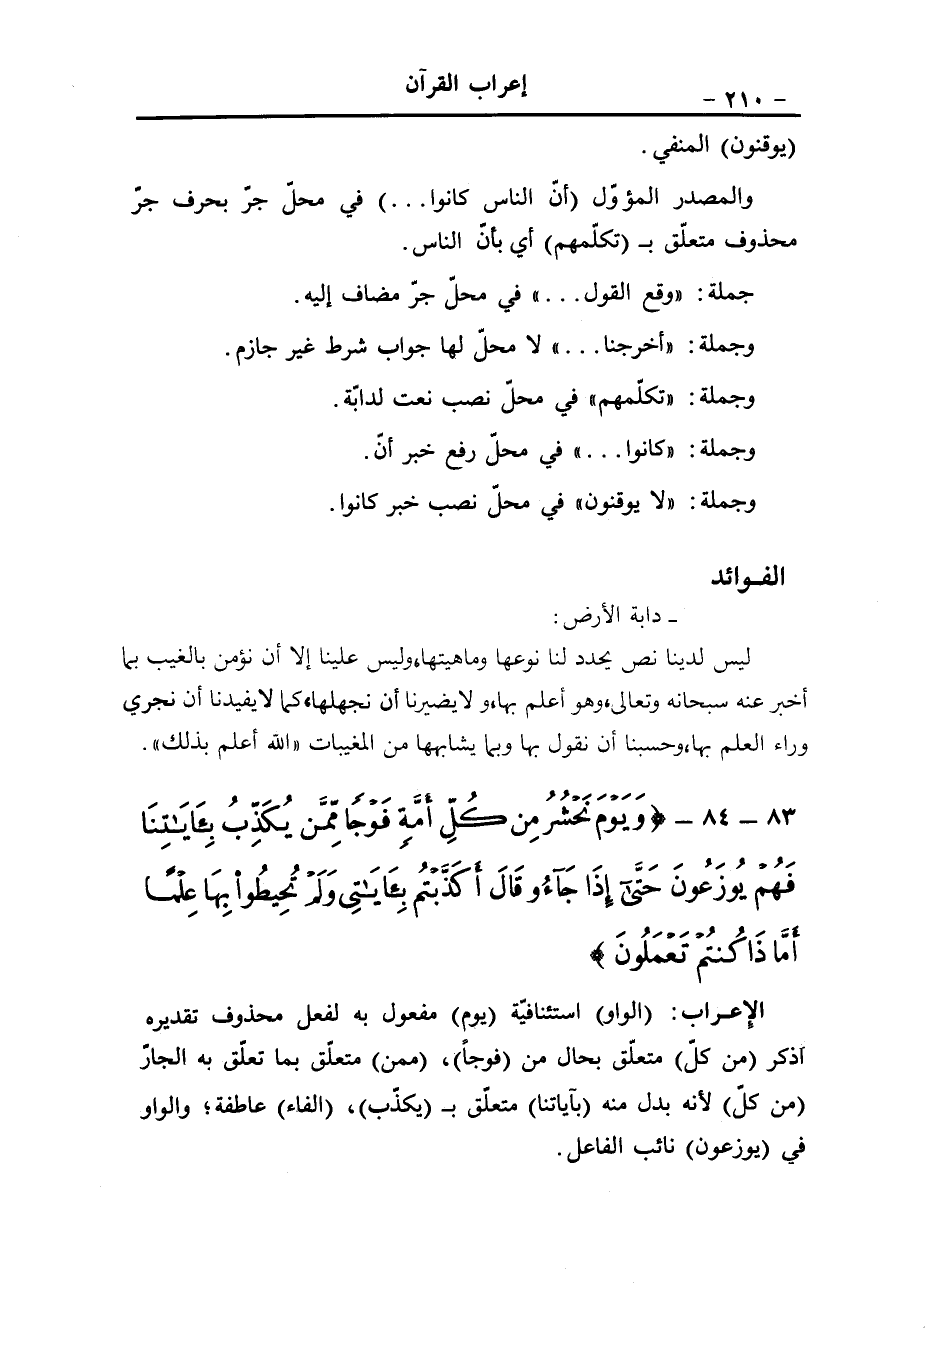 إعراب القرآن
- ٢١٠ -
(يوقنون) المنفي .
والمصدر المؤوّل (أنّ الناس كانوا. . .) في محلّ جرّ بحرف جرّ
محذوف متعلّق بـ (تكلّمهم) أي بأنّ الناس.
جملة: «وقع القول. . .» في محلّ جرّ مضاف إليه.
وجملة: «أخرجنا. . .» لا محلّ لها جواب شرط غير جازم.
وجملة: «تكلّمهم» في محلّ نصب نعت لدابّة.
وجملة: «كانوا. . .» في محلّ رفع خبر أنّ.
وجملة: «لا يوقنون» في محلّ نصب خبر كانوا.
الفـوائد
ـ دابة الأرض:
ليس لدينا نص يحدد لنا نوعها وماهيتها،وليس علينا إلا أن نؤمن بالغيب بما
أخبر عنه سبحانه وتعالى،وهو أعلم بها،و لايضيرنا أن نجهلها،كما لايفيدنا أن نجري
وراء العلم بها،وحسبنا أن نقول بها وبما يشابهها من المغيبات «الله أعلم بذلك».
٨٣ ـ ٨٤ ـ ﴿وَيَوْمَ نَحْشُرُ مِن كُلِّ أُمَّةٍ فَوْجًا مِّمَّن يُكَذِّبُ بِـَٔايَـٰتِنَا
فَهُمْ يُوزَعُونَ حَتَّىٰٓ إِذَا جَآءُو قَالَ أَكَذَّبْتُم بِـَٔايَـٰتِى وَلَمْ تُحِيطُوا۟ بِهَا عِلْمًا
أَمَّا ذَا كُنتُمْ تَعْمَلُونَ ﴾
الإعـراب: (الواو) استئنافيّة (يوم) مفعول به لفعل محذوف تقديره
اذكر (من كلّ) متعلّق بحال من (فوجاً)، (ممن) متعلّق بما تعلّق به الجارّ
(من كلّ) لأنه بدل منه (بآياتنا) متعلّق بـ (يكذّب)، (الفاء) عاطفة؛ والواو
في (يوزعون) نائب الفاعل.